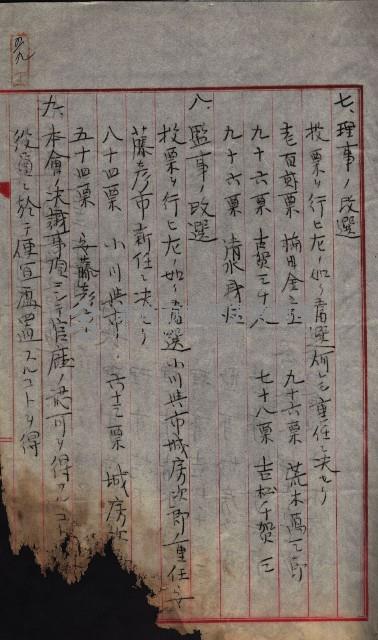 七、理事ノ改選
投票ヲ行ヒ左ノ如ク當選何レモ重任ニ決セリ
老百貳票 梅田金之丞 九十六票 荒木萬之助
九十六票 古賀三千人 七十八票 吉松千賀三
九十六票 清水身
八、監事ノ改選
投票ヲ行ヒ左ノ如ク當選小川與市城房次郎ノ重任安
藤彦市新任ニ決セリ
八十四票 小川與市 六十三票 城房次
五十四票 安藤彦
九、本會ノ決議事項ニシテ官庭ノ認可ヲ得ルコト
役員ニ於テ便宜處置スルコトヲ得